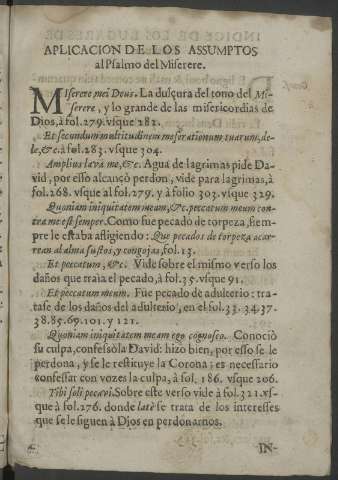 APLICACION DE LOS ASSUMPTOS
al Psalmo del Miserere.
MIserere mei Deus. La dulçura del tono del Mi-
serere, y lo grande de las misericordias de
Dios, à fol. 279. vsque 282.
Et secundum multitudinem miserationum tuarum, de-
le, &c. à fol. 283. vsque 304.
Amplius lava me, &c. Agua de lagrimas pide Da-
vid, por esso alcançò perdon, vide para lagrimas, à
fol. 268. vsque al fol. 279. y à folio 303. vsque 329.
Quoniam iniquitatem meam, &c. peccatum meum con-
tra me est semper. Como fue pecado de torpeza, siem-
pre le estaba afligiendo: Que pecados de torpeza acar-
rean al alma sustos, y congojas, fol. 13.
Et peccatum, &c. Vide sobre el mismo verso los
daños que traìa el pecado, à fol. 35. vsque 91.
Et peccatum meum. Fue pecado de adulterio: tra-
tase de los daños del adulterio, en el fol. 33. 34. 37.
38. 85. 69. 101. y 121.
Quoniam iniquitatem meam ego cognosco. Conociò
su culpa, confessòla David: hizo bien, por esso se le
perdona, y se le restituye la Corona; es necessario
confessar con vozes la culpa, à fol. 186. vsque 206.
Tibi soli peccavi. Sobre este verso vide à fol. 321. vs-
que à fol. 276. donde latè se trata de los interesses
que se le siguen à Dios en perdonarnos.
IN-